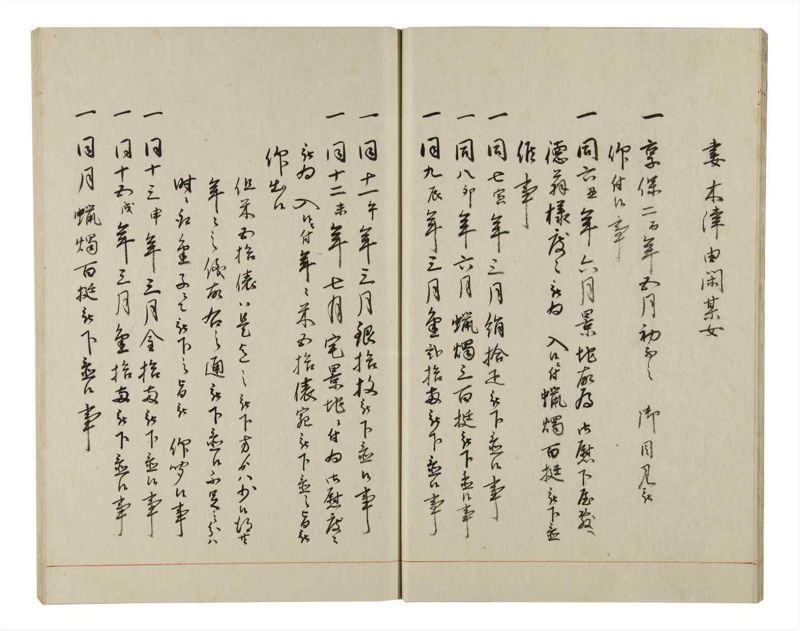 妻木津由閑某女
一享保二酉年五月初而 御目見被
仰付候事
一同六丑年六月景地故為御慰下屋敷へ
徳翁様度々被為 入候付蠟燭百挺被下置
候事
一同七寅年三月絹拾疋被下置候事
一同八卯年六月蠟燭三百挺被下置候事
一同九辰年三月金弐拾両被下置候事
一同十一午年三月銀拾枚被下置候事
一同十二未年七月宅景地ニ付為御慰度々
被為 入候付年々米五拾俵宛被下置之旨被
仰出候
但米五拾俵ハ是迄之被下方ハ少候得共
年々之儀故右之通被下置候不足之分ハ
時々ニ金子ニ而被下之旨被 仰聞候事
一同十三申年三月金拾両被下置候事
一同十五戌年三月金拾両被下置候事
一同月蠟燭百挺被下置候事